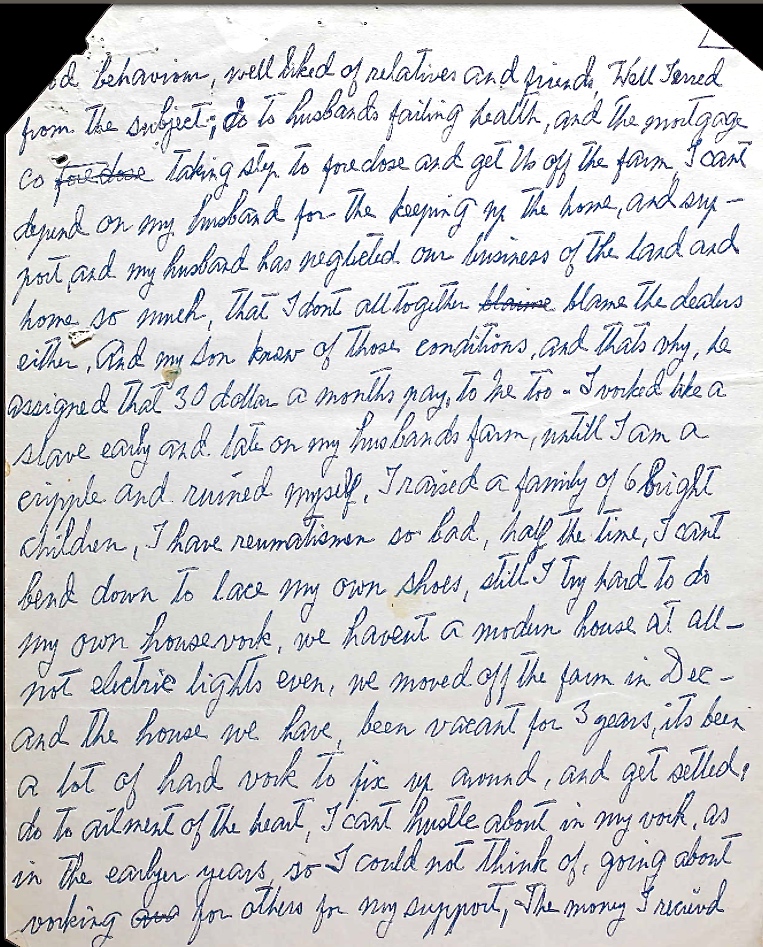 behaviour, well liked of relatives and friends, Well I erred
from the subject; do to husbands failing health, and the mortgage
co foreclose taking step to foreclose and get Us off the farm, I cant
depend on my husband for the keeping up the home, and sup-
port, and my husband has neglected our business of the land and
home so much, that I dont alltogether blaime blame the dealers
either, And my son knew of those conditions, and thats why, he
assigned that 30 dollar a months pay, to me too - I worked like a
slave early and late on my husbands farm, untill I am a
cripple and ruined myself, I raised a family of 6 bright
children, I have reumatismen so bad, half the time, I cant
bend down to lace my own shoes, still I try hard to do
my own housework, we havent a modern house at all-
not electric lights even, we moved off the farm in Dec-
and the house we have, been vacant for 3 years, its been
a lot of hard work to fix up around, and get settled,
do to ailment of the heart, I cant hustle about in my work, as
in the earlyer years, so I could not think of, going about
working for others for my support, The money I recievd